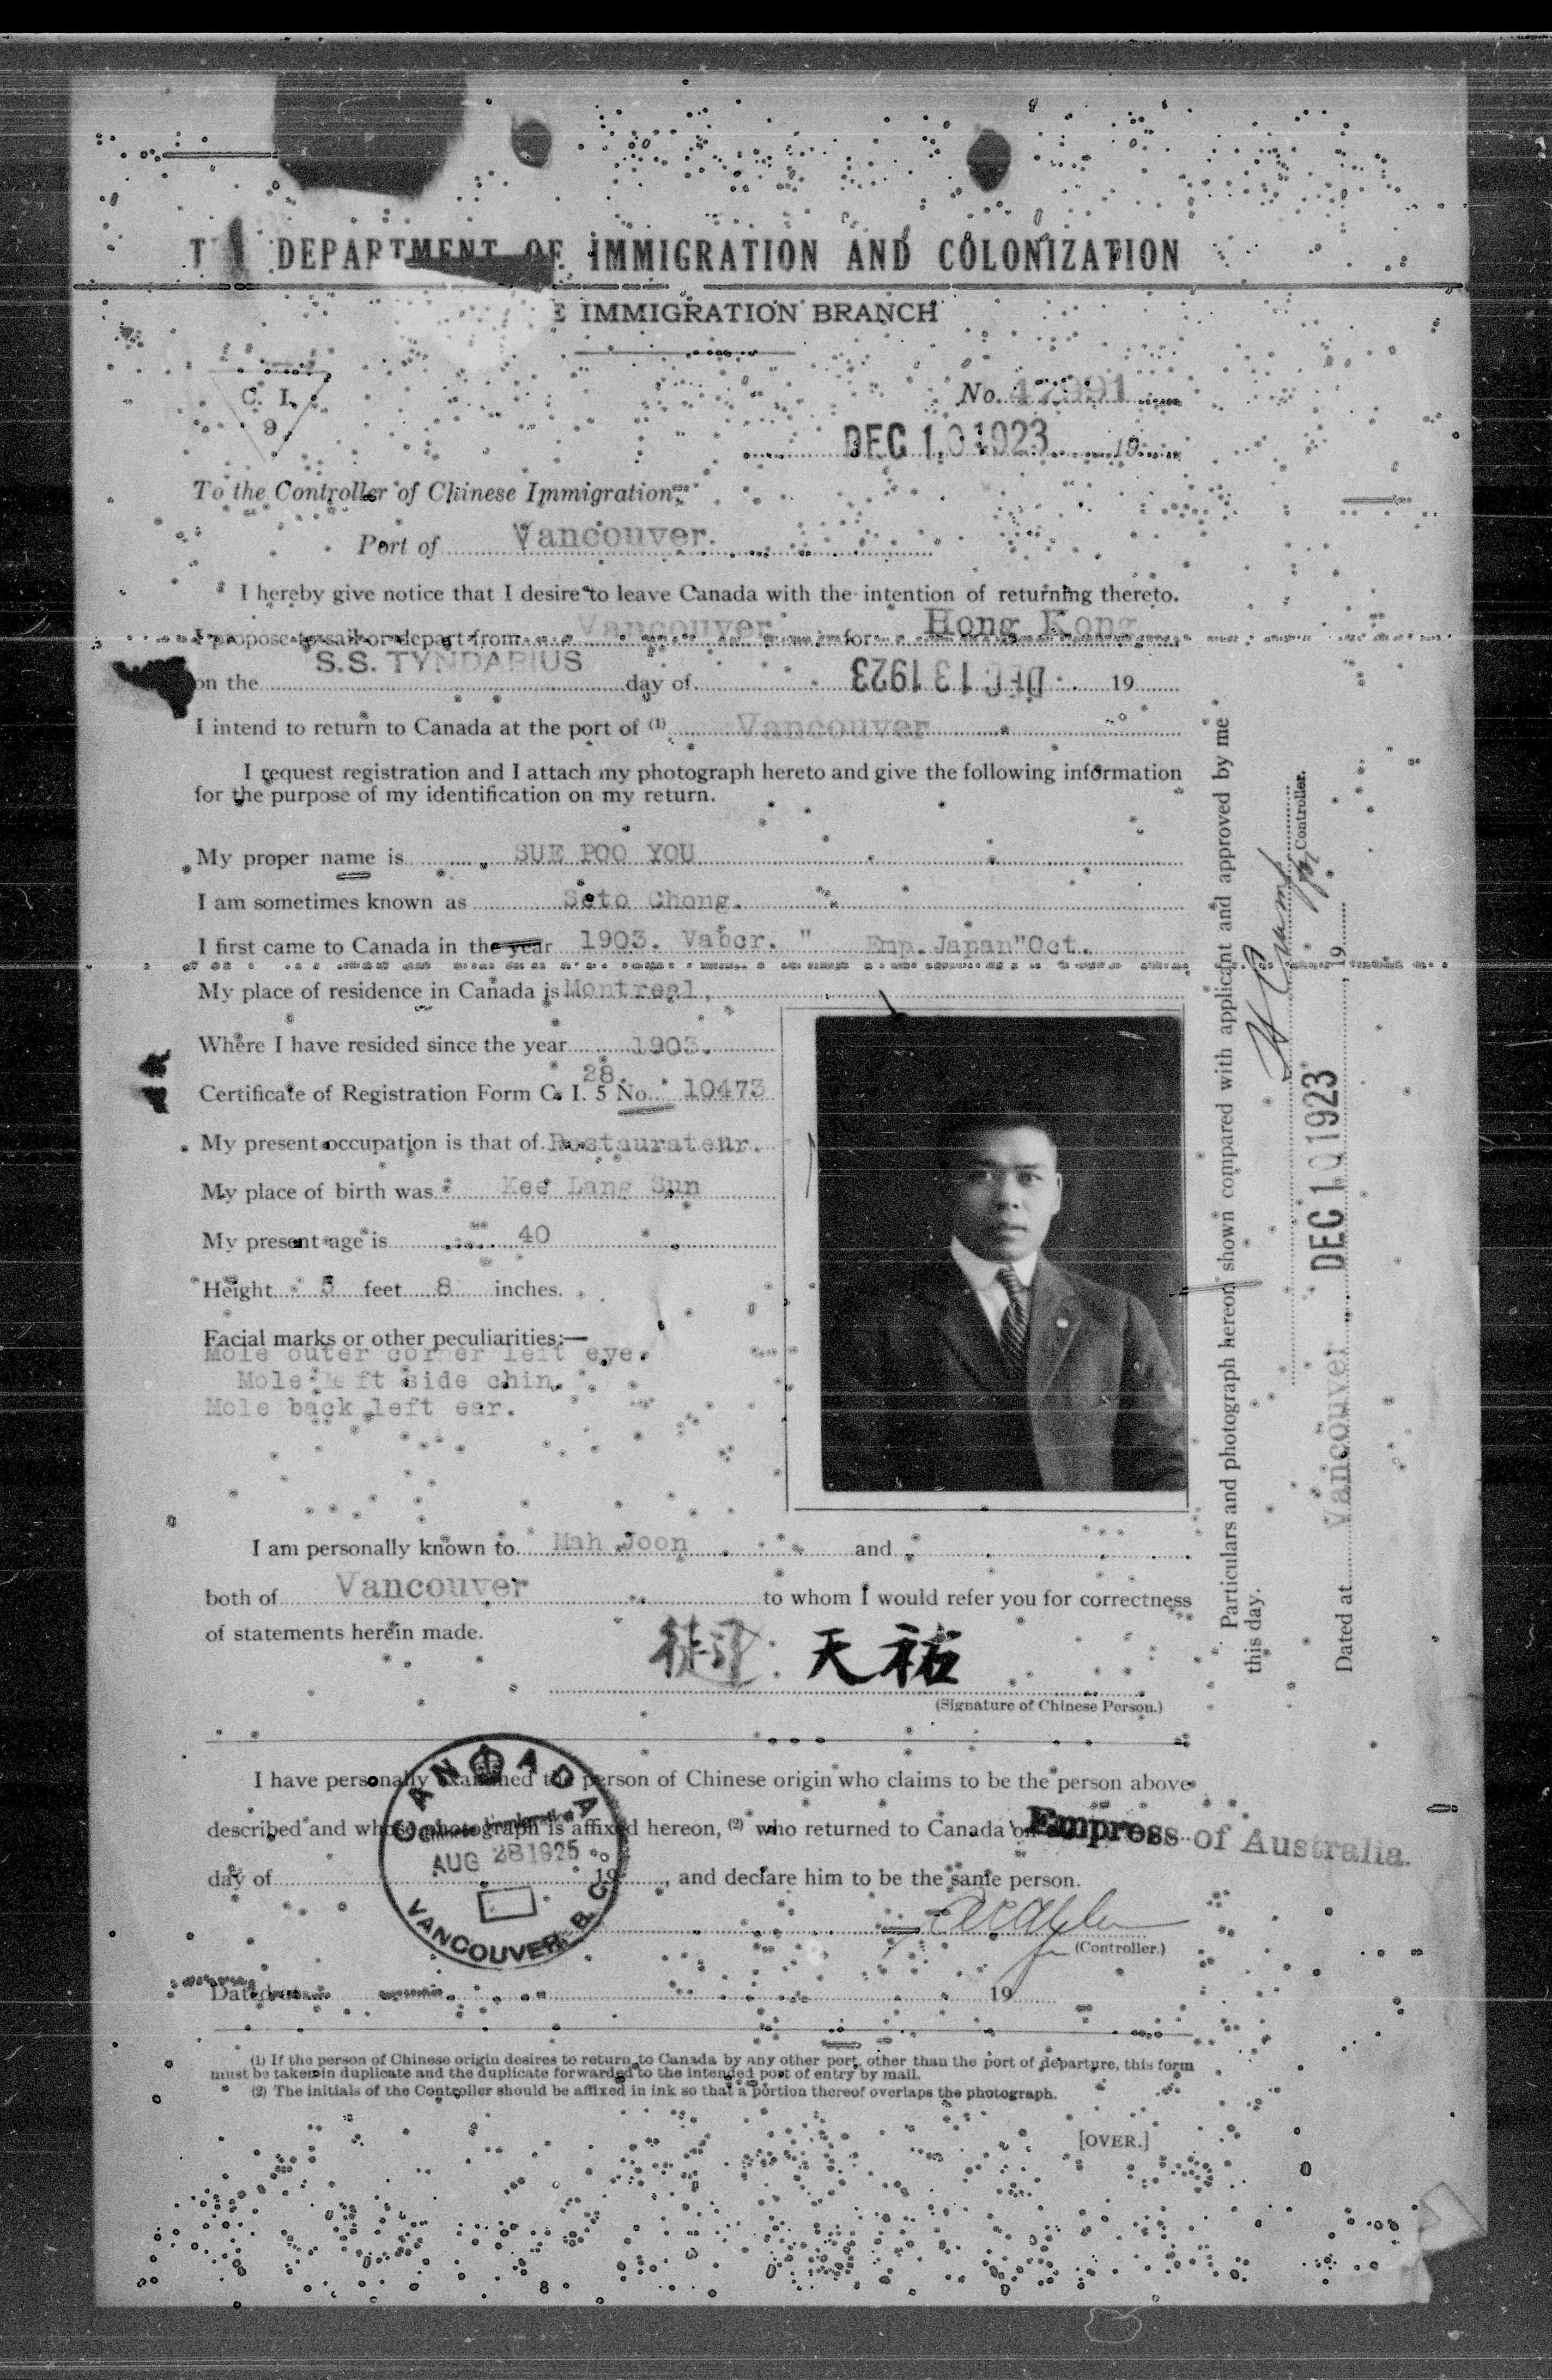 DEPARTMENT OF IMMIGRATION AND COLONIZATION
IMMIGRATION BRANCH
C. I.
9
No. 47991
DEC 10 1923 19
To the Controller of Chinese Immigration,
Port of Vancouver.
I hereby give notice that I desire to leave Canada with the intention of returning thereto.
I propose to sail or depart from Vancouver for Hong Kong
S.S. TYNDARIUS
on the day of DEC 13 1923 19
I intend to return to Canada at the port of (1) Vancouver
I request registration and I attach my photograph hereto and give the following information
for the purpose of my identification on my return.
My proper name is SUE POO YOU
I am sometimes known as Seto Chong.
I first came to Canada in the year 1903. Vabcr. " Emp. Japan" Oct.
My place of residence in Canada is Montreal,
Where I have resided since the year 1903.
28.
Certificate of Registration Form C. I. 5 No. 10473
My present occupation is that of Restaurateur.
My place of birth was Kee Lang Sun
My present age is 40
Height 5 feet 8 inches.
Facial marks or other peculiarities:—
Mole outer corner left eye.
Mole left side chin.
Mole back left ear.
I am personally known to Mah Joon and
both of Vancouver to whom I would refer you for correctness
of statements herein made.
天祐
(Signature of Chinese Person.)
I have personally examined the person of Chinese origin who claims to be the person above
described and whose photograph is affixed hereon, (2) who returned to Canada on Empress of Australia.
day of 19 , and declare him to be the same person.
CANADA
Chinese Immigration
AUG 28 1925
VANCOUVER, B. C.
(Controller.)
Dated at 19
(1) If the person of Chinese origin desires to return to Canada by any other port, other than the port of departure, this form
must be taken in duplicate and the duplicate forwarded to the intended port of entry by mail.
(2) The initials of the Controller should be affixed in ink so that a portion thereof overlaps the photograph.
[OVER.]
Particulars and photograph hereon shown compared with applicant and approved by me
this day.
Controller.
Dated at Vancouver DEC 10 1923 19